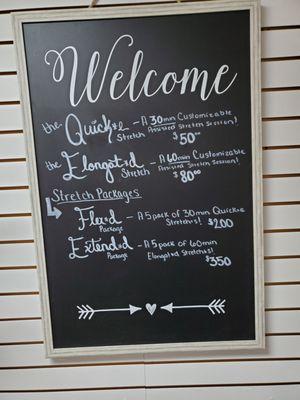 Welcome
the Quick•d Stretch - A 30min Customizable Assisted Stretch Session! $50⁰⁰
the Elongat•d Stretch - A 60min Customizable Assisted Stretch Session! $80⁰⁰
Stretch Packages
Flex•d Package - A 5 pack of 30min Quick•d Stretch•s! $200
Extend•d Package - A 5 pack of 60min Elongat•d Stretch•s! $350